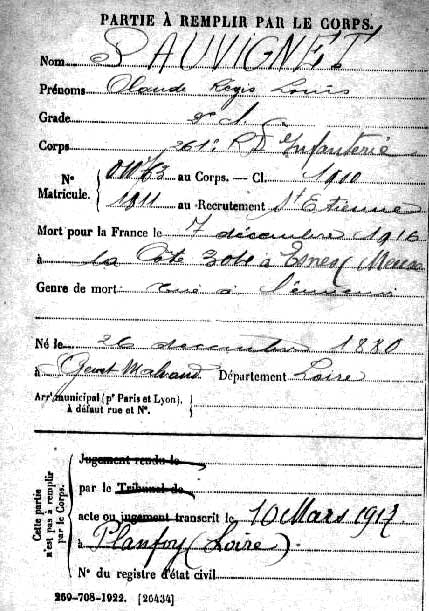 PARTIE À REMPLIR PAR LE CORPS.
Nom SAUVIGNET
Prénoms Claude Régis Louis
Grade 2e S.
Corps 261e Rt d'Infanterie
N° Matricule. 01163 au Corps. — Cl. 1910
1911 au Recrutement St Etienne
Mort pour la France le 7 décembre 1916
à la Côte 304 à Esnes (Meuse
Genre de mort tué à l'ennemi
Né le 26 décembre 1880
à Genest Malvaud Département Loire
Arrt municipal (pr Paris et Lyon),
à défaut rue et N°.
Cette partie
n'est pas à remplir
par le Corps.
Jugement rendu le
par le Tribunal de
acte ou jugement transcrit le 10 Mars 1917.
à Planfoy (Loire)
N° du registre d'état civil
269-708-1922. [26434]